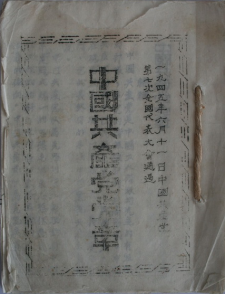 一九四五年六月十一日中國共產黨
第七次全國代表大會通過
中國共產黨黨章